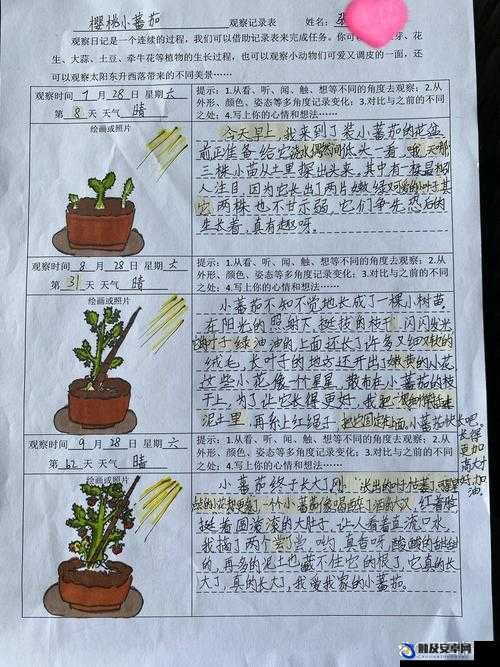 樱桃小蕃茄 观察记录表 姓名:
观察日记是一个连续的过程,我们可以借助记录表来完成任务。你可 芽、花
生、大蒜、土豆、牵牛花等植物的生长过程,也可以观察小动物们可爱又调皮的一面,还
可以观察太阳东升西落带来的不同美景……
观察时间 7 月 28 日 星期 六
第 8 天 天气 晴
绘画或照片
提示:1.从看、听、闻、触、想等不同的角度去观察;2.从
外形、颜色、姿态等多角度记录变化;3.对比与之前的不同
之处;4.写上你的心情和想法……
今天早上,我来到了装小蕃茄的花盆
前正准备给它浇水偶然间低头一看,哦,天哪
三株小苗从土里探出头来。其中有一株最
人注目,因为它长出了两片嫩绿 的叶子其
它两株也不甘示弱,它们争先恐后的
生长着,真有趣呀。
观察时间 8 月 28 日 星期 六
第 31 天 天气 晴
绘画或照片
提示:1.从看、听、闻、触、想等不同的角度去观察;2.从
外形、颜色、姿态等多角度记录变化;3.对比与之前的不同
之处;4.写上你的心情和想法……
小蕃茄不知不觉地长成了一棵小树苗
在阳光的照射下,挺枝的枝干,闪闪发光
叶子绿油油的上面还长了许多又细又软的
绒毛,长叶子的地方还开出了嫩黄的小花
这些小花像一个星星,散布在小蕃茄的枝
干上,为了让它长得更好,我把 插进
泥土里,再系上红绳子,把它固定 面,小蕃茄快长吧,
去得
更加
高大才
好加
油。
观察时间 9 月 28 日 星期 六
第 62 天 天气 晴
绘画或照片
提示:1.从看、听、闻、触、想等不同的角度去观察;2.从
外形、颜色、姿态等多角度记录变化;3.对比与之前的不同
之处;4.写上你的心情和想法……
小蕃茄终于长大了
一个小蕃茄像喝醉了酒的大汉,红着脸
挺着圆滚滚的大肚子,让人看着直流口水,
我摘了两个尝尝,哟,真香呀酸酸的甜甜
的,再多的泥土也藏不住它的根了,它真的长
大了,真的长大了,我爱我家的小蕃茄。
触及安卓网